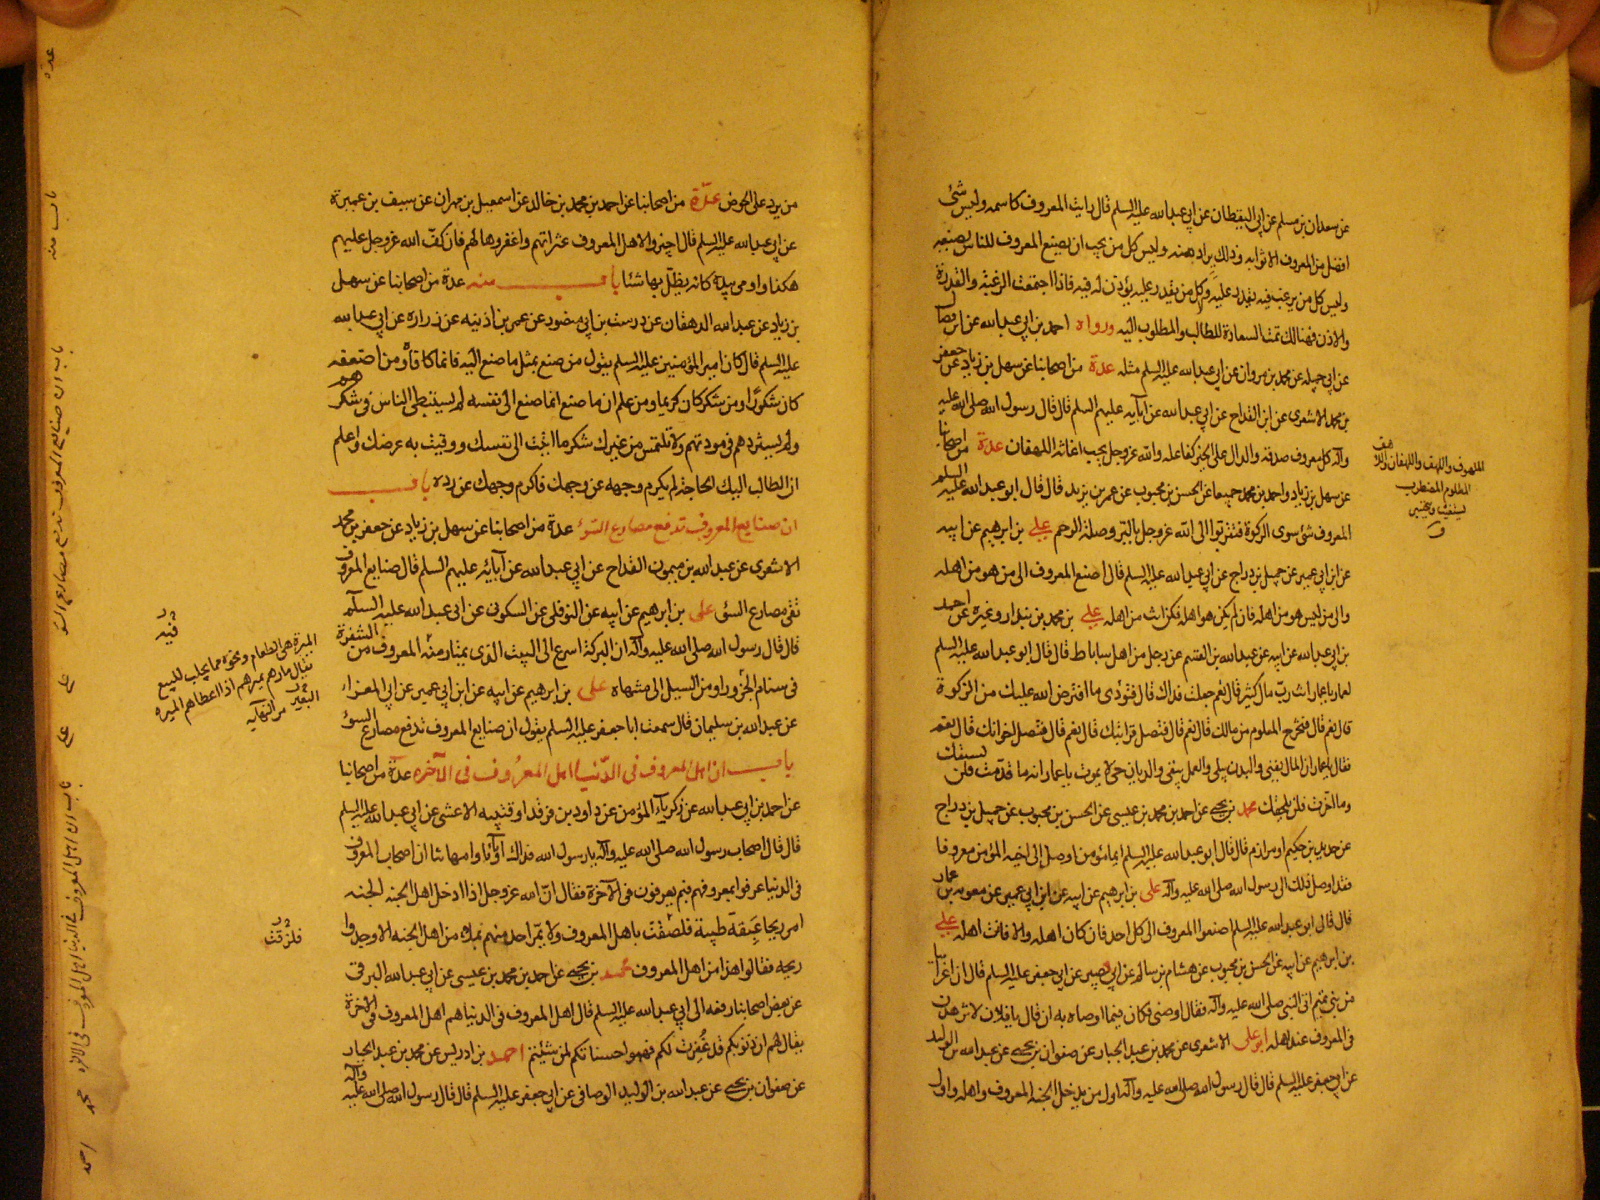 عن سعدان بن مسلم عن ابي اليقظان عن ابي عبد الله عليه السلم قال رايت المعروف كاسمه وليس شئ
افضل من المعروف الا ثوابه وذلك يراد منه وليس كل من يحب ان يصنع المعروف للناس يصنعه
وليس كل من يرغب فيه يقدر عليه ولا كل من يقدر عليه يؤذن له فيه فاذا اجتمعت الرغبة والقدرة
والاذن فهنالك تمت السعادة للطالب والمطلوب اليه ورواه احمد بن ابي عبد الله عن ابن فضال
عن ابي جميله عن محمد بن مروان عن ابي عبد الله عليه السلم مثله عدة من اصحابنا عن سهل بن زياد عن جعفر
بن محمد الاشعرى عن ابن القداح عن ابي عبد الله عن آبايه عليهم السلم قال قال رسول الله صلى الله عليه
وآله كل معروف صدقه والدال على الخير كفاعله والله عز وجل يحب اغاثة اللهفان عدة من اصحابنا
عن سهل بن زياد واحمد بن محمد جميعا عن الحسن بن محبوب عن عمر بن يزيد قال قال ابو عبد الله عليه السلم
المعروف شئ سوى الزكوة فتقربوا الى الله عز وجل بالبر وصلة الرحم علي بن ابرهيم عن ابيه
عن ابن ابي عمير عن جميل بن دراج عن ابي عبد الله عليه السلم قال اصنع المعروف الى من هو من اهله
والى من ليس هو من اهله فان لم يكن هو اهله فكن انت من اهله علي بن محمد بن بندار وغيره عن احمد
بن ابي عبد الله عن ابيه عن عبد الله بن القسم عن رجل من اهل ساباط قال قال ابو عبد الله عليه السلم
لعمار يا عمار انت رب مال كثير قال نعم جعلت فداك قال فتؤدى ما افترض الله عليك من الزكوة
قال نعم قال فتخرج المعلوم من مالك قال نعم قال فتصل قرابتك قال نعم قال فتصل اخوانك قال نعم
فقال يا عمار ان المال يفنى والبدن يبلى والعمل يبقى والديان حي لا يموت يا عمار انه ما قدمت فلن يسبقك
وما اخرت فلن يلحقك محمد بن يحيى عن احمد بن محمد بن عيسى عن الحسن بن محبوب عن جميل بن دراج
عن حديد بن حكيم او مرازم قال قال ابو عبد الله عليه السلم ايما مؤمن اوصل الى اخيه المؤمن معروفا
فقد اوصل ذلك الى رسول الله صلى الله عليه وآله على بن ابرهيم عن ابيه عن ابن ابي عمير عن معويه بن عمار
قال قال لي ابو عبد الله عليه السلم اصنعوا المعروف الى كل احد فان كان اهله والا فانت اهله علي
بن ابرهيم عن ابيه عن الحسن بن محبوب عن هشام بن سالم عن ابي بصير عن ابي جعفر عليه السلم قال ان اعرابيا
من بنى تميم اتى النبي صلى الله عليه وآله فقال اوصنى فكان فيما اوصاه به ان قال يا فلان لا تزهدن
فى المعروف عند اهله ابو على الاشعرى عن محمد بن عبد الجبار عن صفوان بن يحيى عن عبد الله بن الوليد
عن ابي جعفر عليه السلم قال قال رسول الله صلى الله عليه وآله اول من يدخل الجنه المعروف واهله واول
الملهوف واللهف واللهفان واللاهف
المظلوم المضطرب
يستغيث ويتحسر
ق
من يرد على الحوض عدة من اصحابنا عن احمد بن محمد بن خالد عن اسمعيل بن مهران عن سيف بن عميرة
عن ابي عبد الله عليه السلم قال اجيزوا لاهل المعروف عثراتهم واغفروها لهم فان كف الله عز وجل عليهم
هكذا واومى بيده كانه يظل بها شئا باب منه عدة من اصحابنا عن سهل
بن زياد عن عبد الله الدهقان عن درست بن ابي منصور عن عمر بن اذينه عن زراره عن ابي عبد الله
عليه السلم قال كان امير المؤمنين عليه السلم يقول من صنع بمثل ما صنع اليه فانما كافاه ومن اضعفه
كان شكورا ومن شكر كان كريما ومن علم ان ما صنع انما صنع الى نفسه لم يستبطى الناس في شكرهم
ولم يستزدهم فى مودتهم ولا تلتمس من غيرك شكر ما اتيت الى نفسك ووقيت به عرضك واعلم
ان الطالب اليك الحاجة لم يكرم وجهه عن وجهك فاكرم وجهك عن رده باب
ان صنايع المعروف تدفع مصارع السوء عدة من اصحابنا عن سهل بن زياد عن جعفر بن محمد
الاشعرى عن عبد الله بن ميمون القداح عن ابي عبد الله عن آبايه عليهم السلم قال صنايع المعروف
تقى مصارع السوء على بن ابرهيم عن ابيه عن النوفلى عن السكونى عن ابى عبد الله عليه السلم
قال قال رسول الله صلى الله عليه وآله ان البركة اسرع الى البيت الذى يمتار منه المعروف من الشفرة
فى سنام الجزور او من السيل الى منتهاه على بن ابرهيم عن ابيه عن ابن ابي عمير عن ابي المعزا
عن عبد الله بن سليمان قال سمعت ابا جعفر عليه السلم يقول ان صنايع المعروف تدفع مصارع السوء
باب ان اهل المعروف فى الدنيا اهل المعروف فى الآخره عدة من اصحابنا
عن احمد بن ابي عبد الله عن زكريا المؤمن عن داود بن فرقد او قتيبه الاعشى عن ابي عبد الله عليه السلم
قال قال اصحاب رسول الله صلى الله عليه وآله يا رسول الله فداك آباؤنا وامهاتنا ان اصحاب المعروف
فى الدنيا عرفوا بمعروفهم فبم يعرفون فى الآخرة فقال ان الله عز وجل اذا ادخل اهل الجنه الجنه
امر ريحا عبقة طيبة فلصقت باهل المعروف ولا يمر احد منهم بملاء من اهل الجنه الا وجدوا
ريحه فقالوا هذا من اهل المعروف محمد بن يحيى عن احمد بن محمد بن عيسى عن ابي عبد الله البرقى
عن بعض اصحابنا رفعه الى ابي عبد الله عليه السلم قال اهل المعروف فى الدنيا هم اهل المعروف فى الآخرة
يقال لهم ان ذنوبكم قد غفرت لكم فهبوا حسناتكم لمن شئتم احمد بن ادريس عن محمد بن عبد الجبار
عن صفوان بن يحيى عن عبد الله بن الوليد الوصافى عن ابي جعفر عليه السلم قال قال رسول الله صلى الله عليه وآله
الميرة هى الطعام ونحوه مما يجلب للبيع
يقال مارهم يميرهم اذا اعطاهم الميره
من النهايه
فلزقت
عده
باب منه
باب ان صنايع المعروف تدفع مصارع السوء
علي
علي
باب ان اهل المعروف فى الدنيا اهل المعروف فى الاخره
محمد
احمد